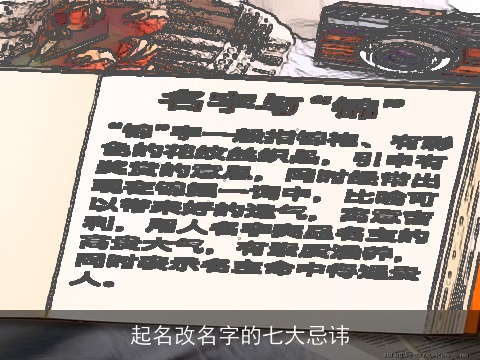 名字与“锦”
“锦”字一般指锦袍、有彩
色的花纹丝织品，引申有
美好的意思，同时锦带出
现在锦鲤一词中，比喻可
以带来好的运气，寓意吉
利，用人名字突显名主的
高贵大气，有素质涵养，
同时表示名主命中得遇贵
人。
起名改名字的七大忌讳